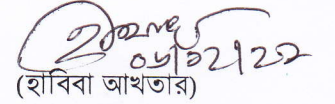 ০৬/১২/২২
(হাবিবা আখতার)